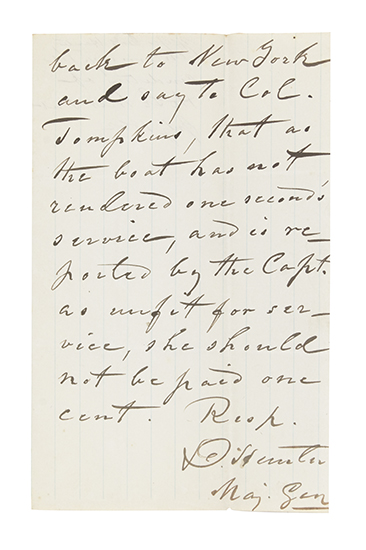 back to New York
and say to Col.
Tompkins, that as
the boat has not
rendered one second's
service, and is re-
ported by the Capt.
as unfit for ser-
vice, she should
not be paid one
cent. Resp.
D. Hunter
Maj. Gen